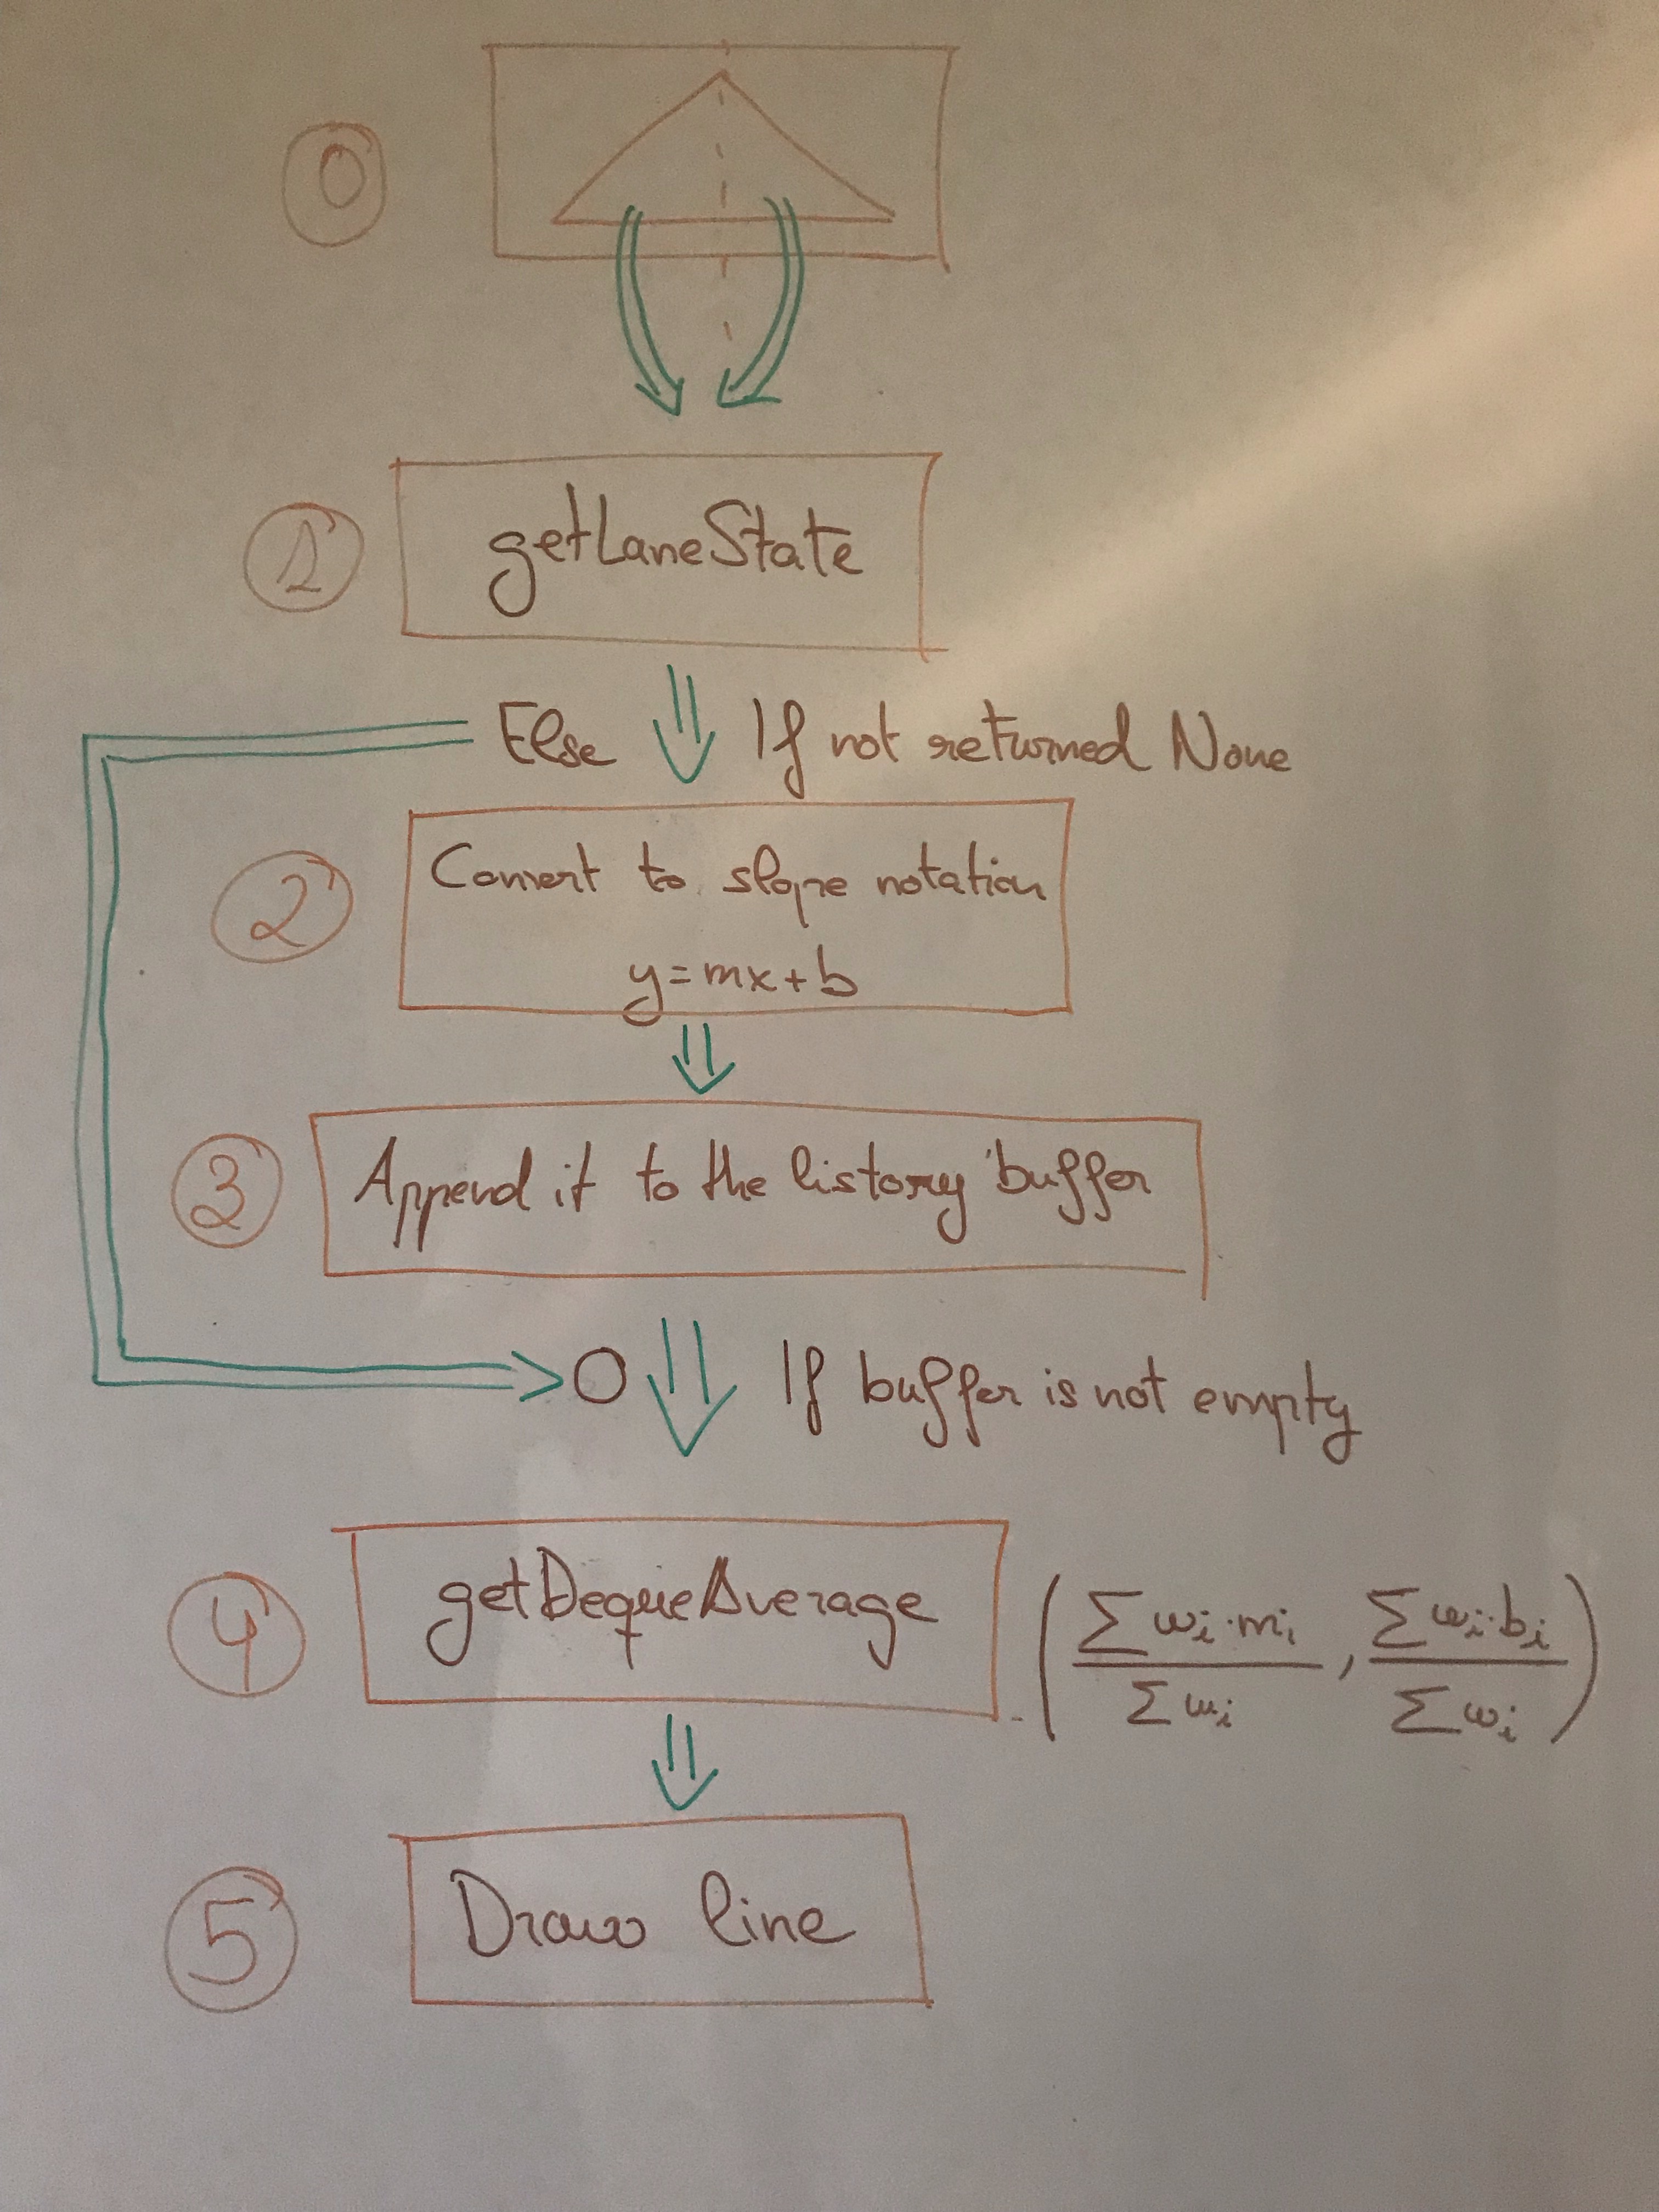 0
1
getLaneState
Else If not returned None
2
Convert to slope notation
y=mx+b
3
Append it to the history buffer
If buffer is not empty
4
getDequeAverage
(∑wi·mi / ∑wi, ∑wi·bi / ∑wi)
5
Draw line